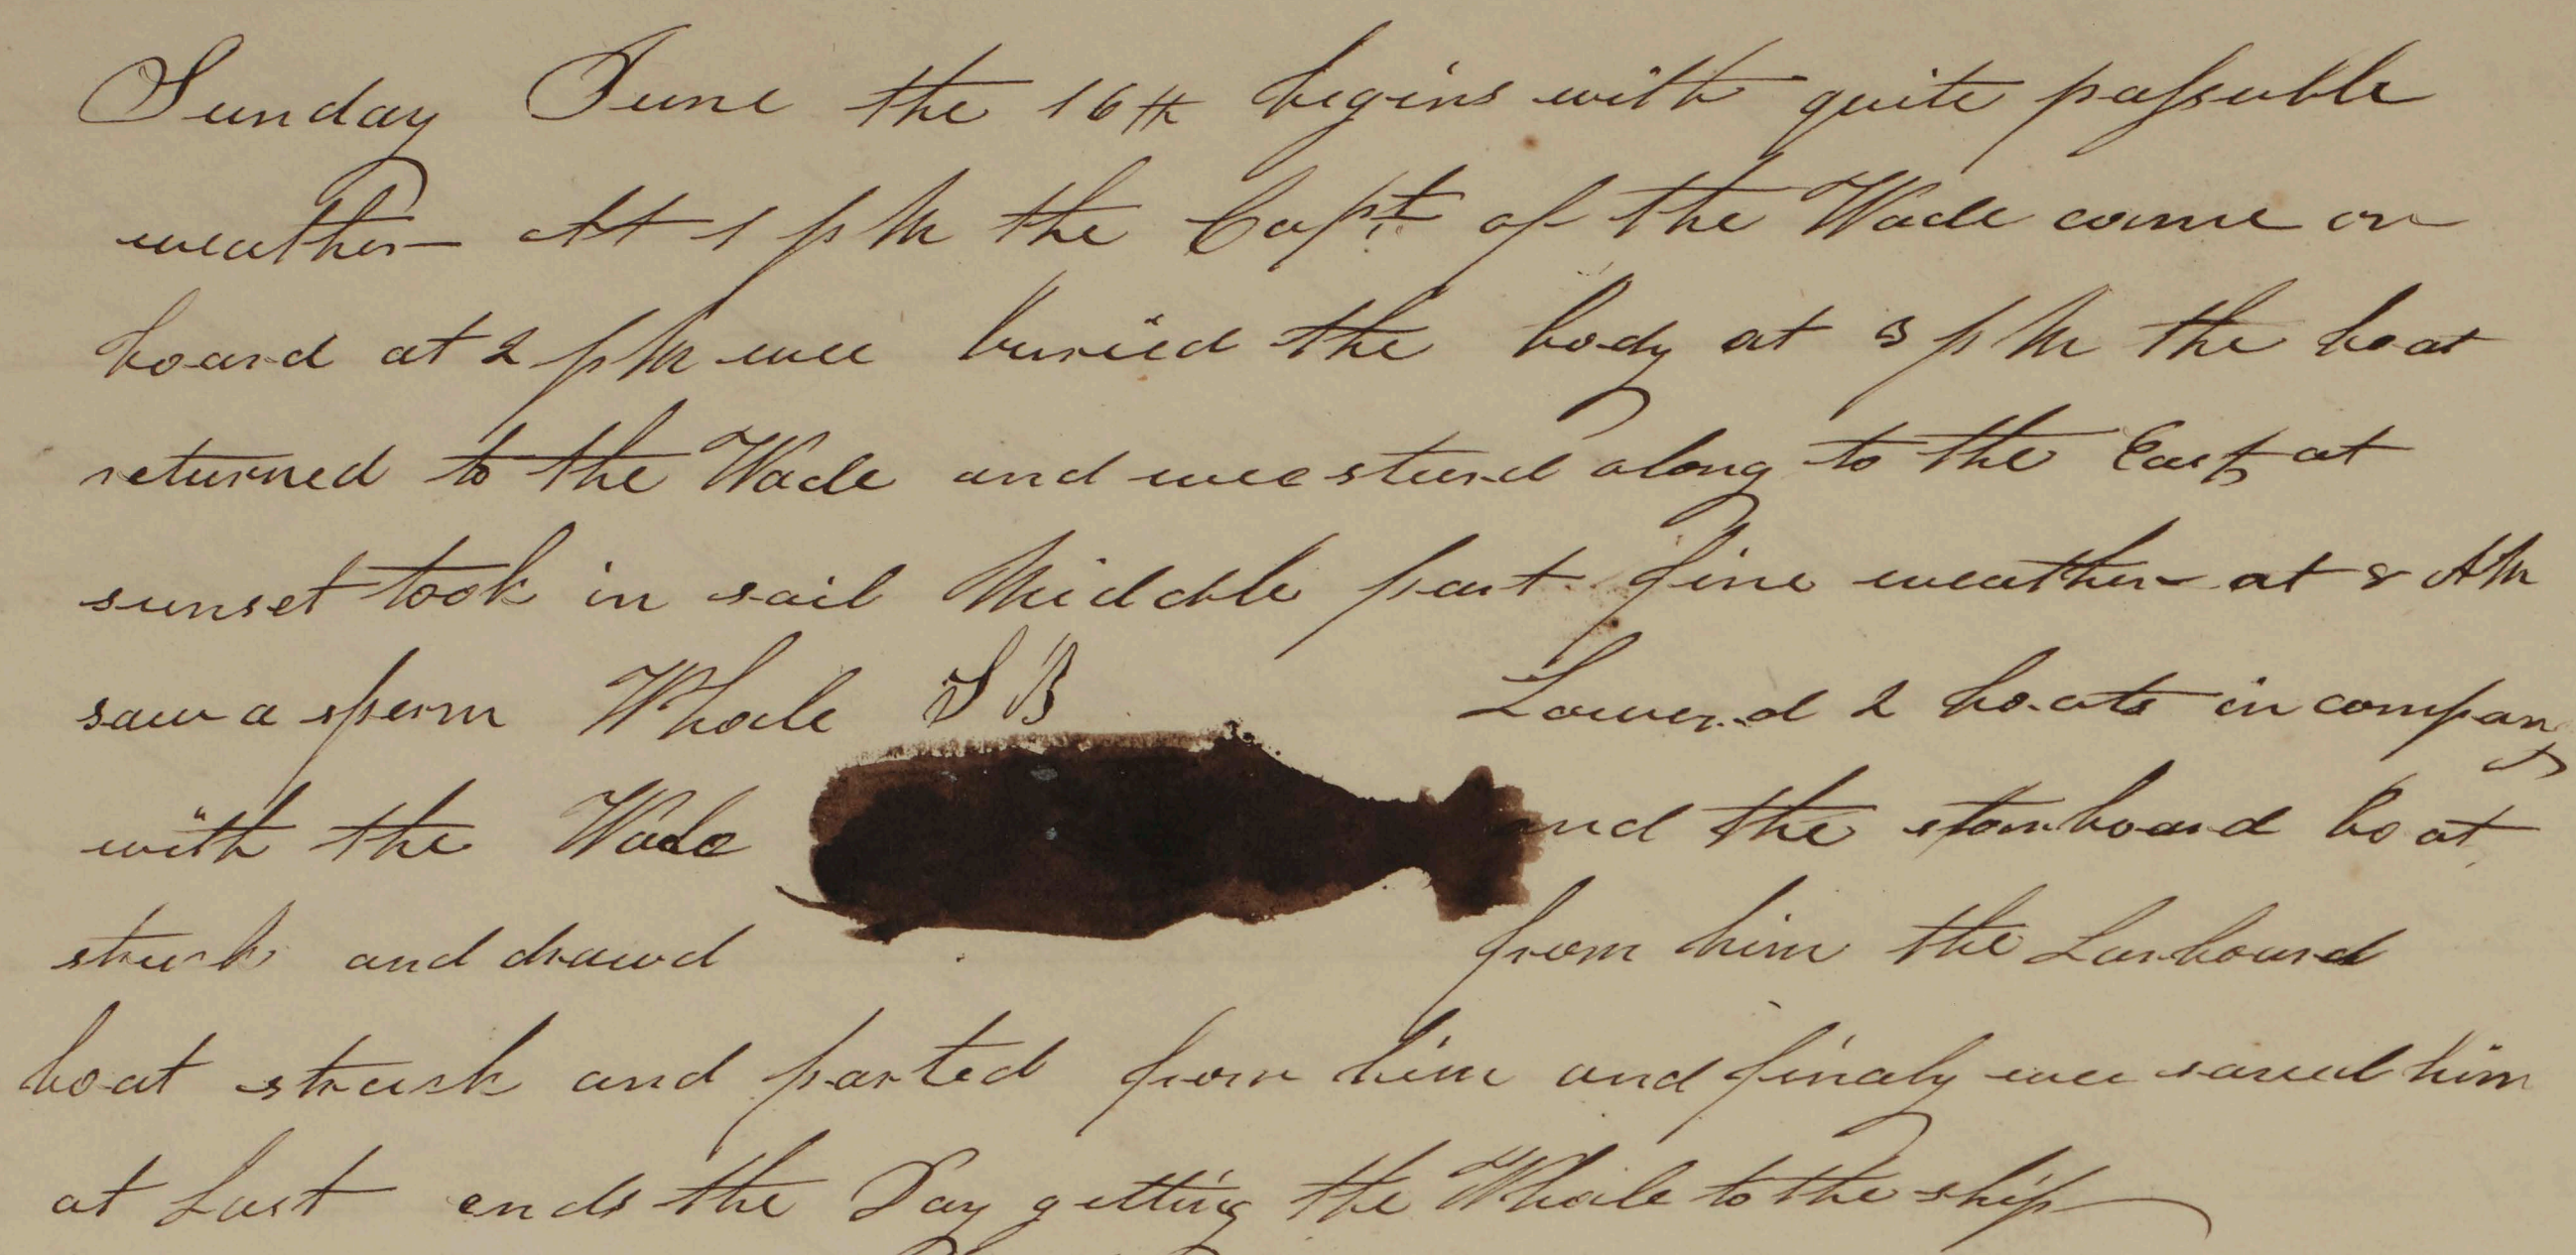 Sunday June the 16th begins with quite passable
weather At 1 p M the Capt of the Wade came on
board at 2 p M wee buried the body at 3 p M the boat
returned to the Wade and wee steerd along to the East at
sunset took in sail Middle part fine weather at 8 AM
saw a sperm Whale S B Lowerd 2 boats in company
with the Wade and the starboard boat
struck and drawd from him the Larboard
boat struck and parted from him and finaly wee saved him
at Last ends the Day getting the Whale to the ship